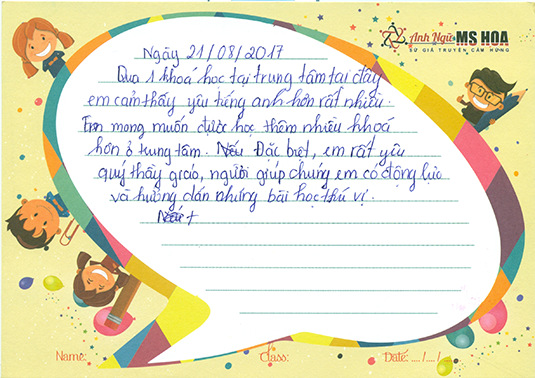 Anh Ngữ MS HOA
SỨ GIẢ TRUYỀN CẢM HỨNG
Ngày 21/08/2017
Qua 1 khoá học tại trung tâm tại đây
em cảm thấy yêu tiếng anh hơn rất nhiều.
Em mong muốn được học thêm nhiều khoá
hơn ở trung tâm. Nếu Đặc biệt, em rất yêu
quý thầy giáo, người giúp chúng em có động lực
và hướng dẫn những bài học thú vị.
Name:
Class:
Date: .... /.... /....